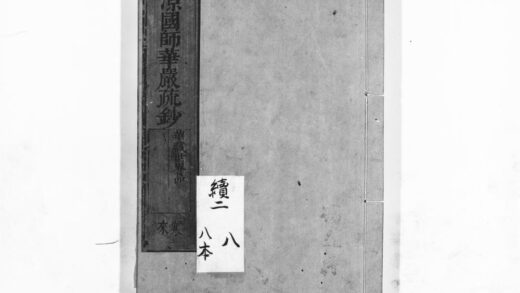 涼國師華嚴疏鈔
續二
八
八本